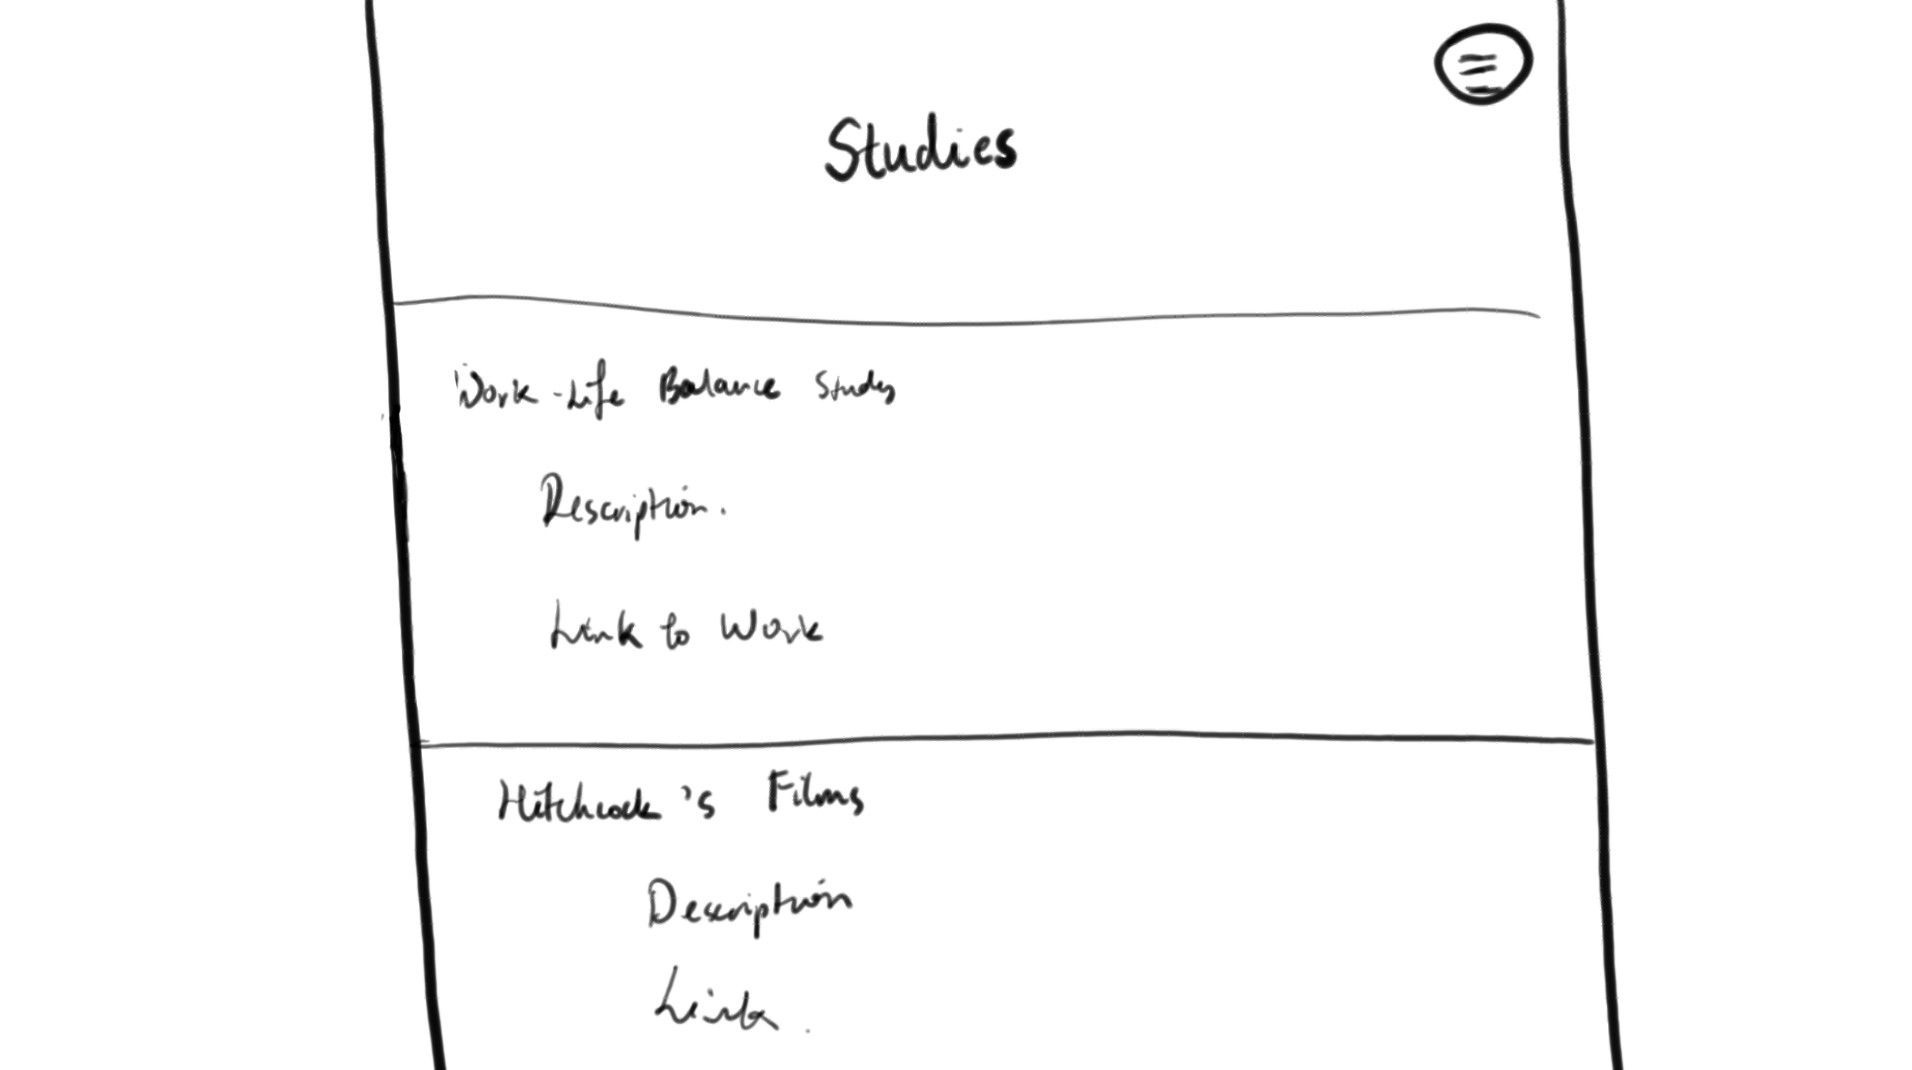 Studies
Work-Life Balance Study
Description.
Link to Work
Hitchcock's Films
Description
Link.